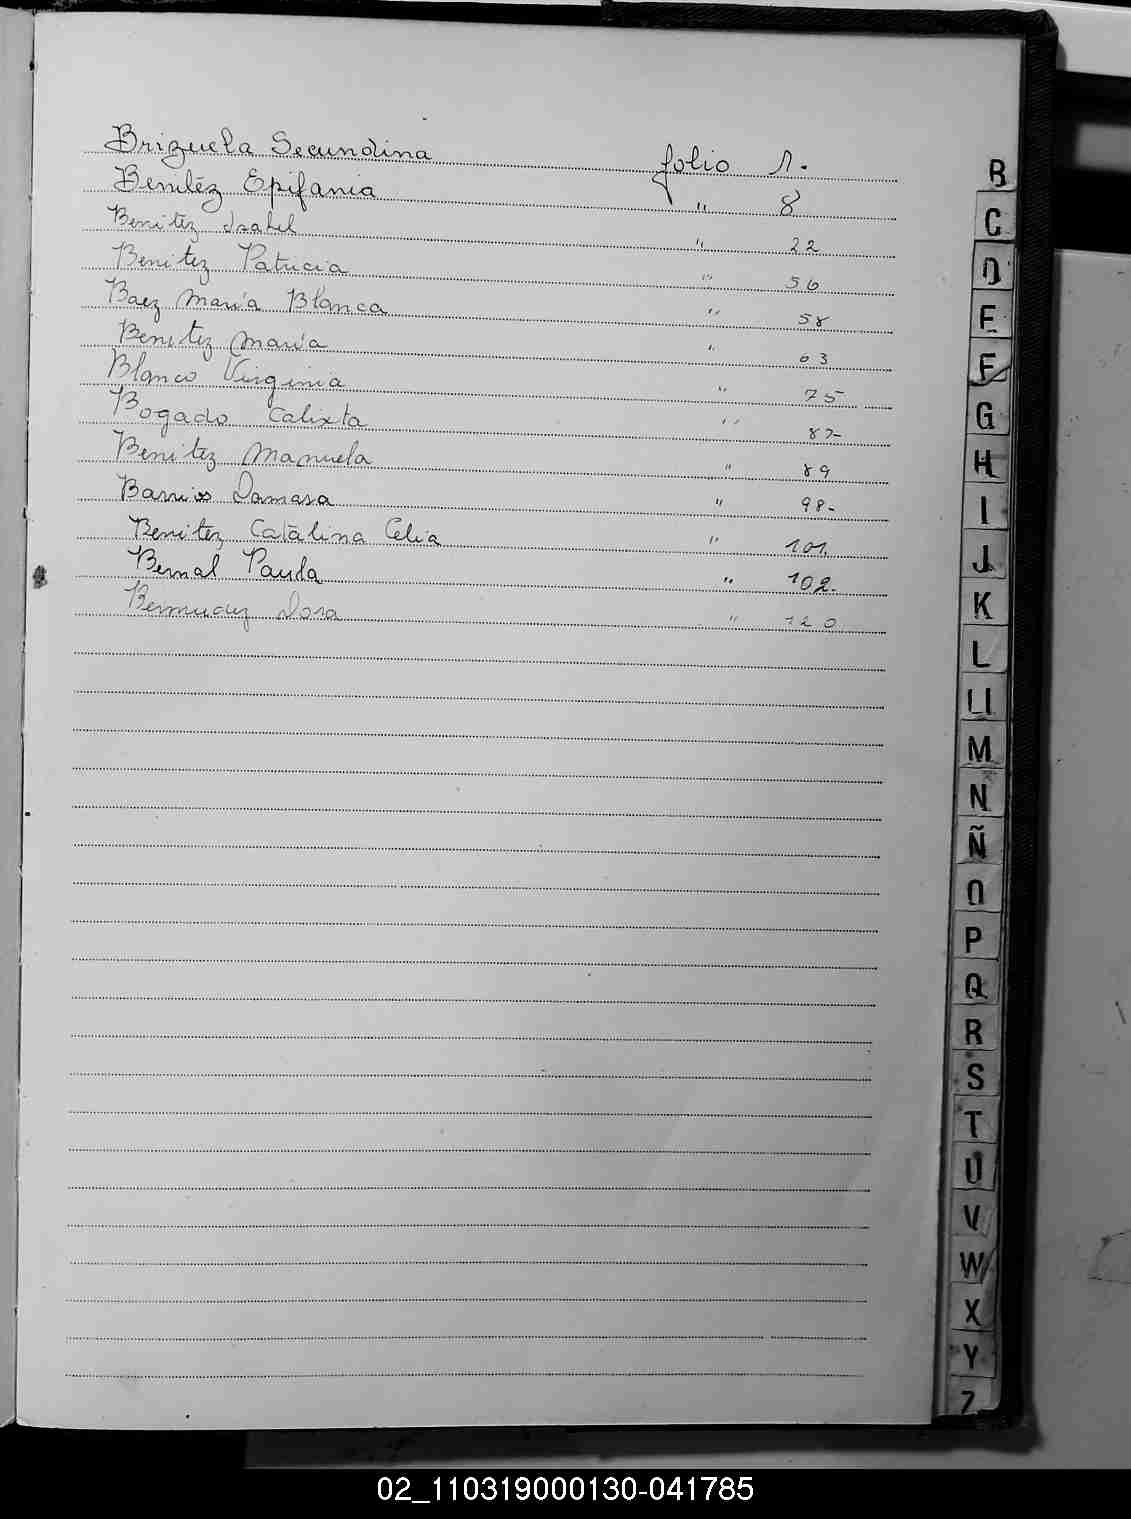 Brizuela Secundina folio 1.
Benítez Epifania " 8
Benitez Isabel " 22
Benitez Patricia " 56
Baez María Blanca " 58
Benitez María " 63
Blanco Virginia " 75
Bogado Calixta " 87-
Benitez Manuela " 89
Barrios Damasa " 98-
Benitez Catalina Celia " 101.
Bernal Paula " 102-
Bermudez Dora " 120
B
C
D
E
F
G
H
I
J
K
L
Ll
M
N
Ñ
O
P
Q
R
S
T
U
V
W
X
Y
Z
02_110319000130-041785